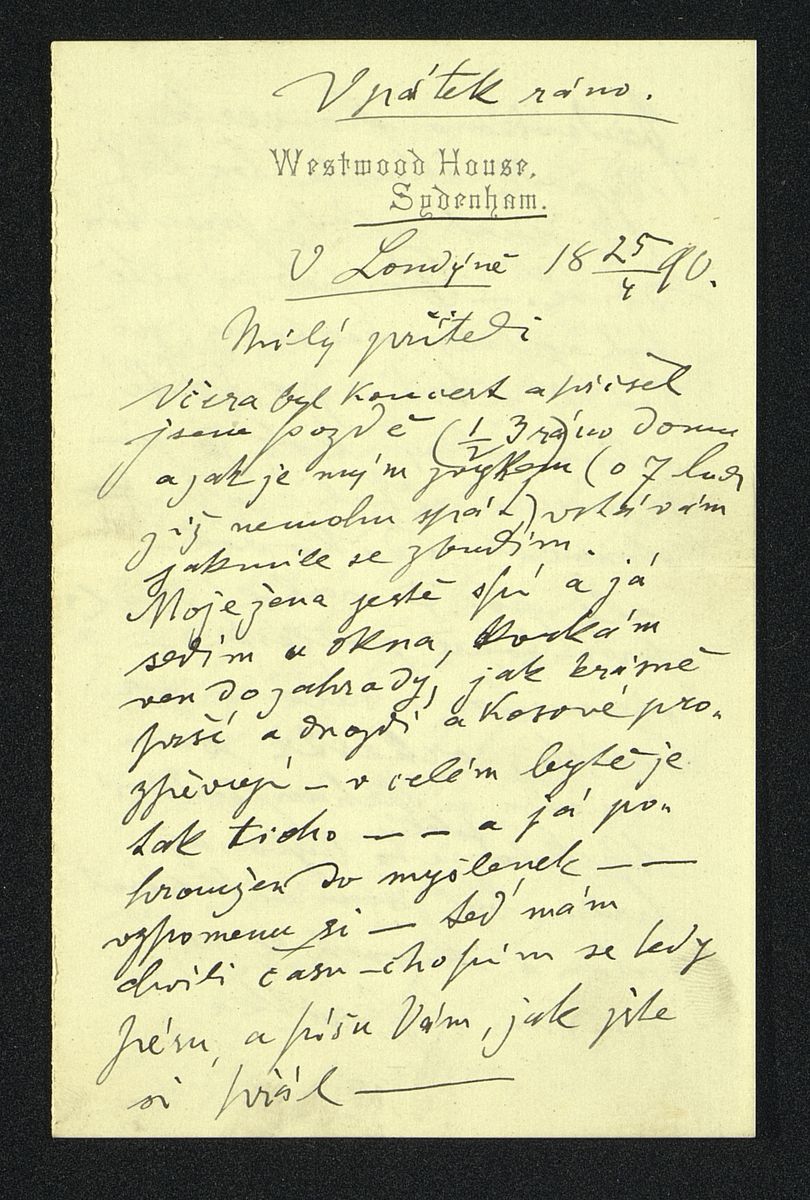 V pátek ráno.
Westwood House,
Sydenham.
V Londýně 18 25/4 90.
Milý příteli
Včera byl koncert a přišel
jsem pozdě (½ 3 ráno) domu
a jak je mým zvykem (o 7 hod
již nemohu spát) vstávám
jakmile se zbudím.
Moje žena ještě spí a já
sedím u okna, koukám
ven do zahrady, jak krásně
prší a drozdi a kosové pro-
zpěvují – v celém bytě je
tak ticho – – a já po-
hroužen do myšlenek – –
vzpomenu si – teď mám
chvíli času – chopím se tedy
péra, a píšu Vám, jak jste
si přál –